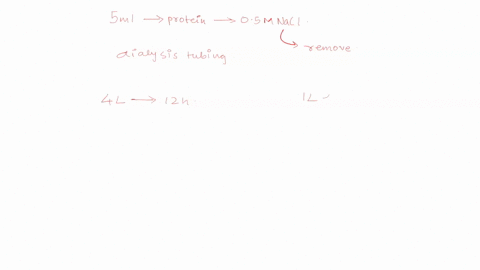 5ml → protein → 0.5M NaCl.
remove
dialysis tubing
4L → 12h.
1L